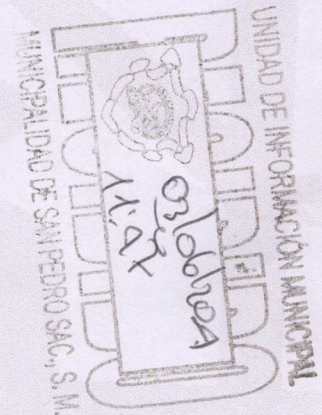 UNIDAD DE INFORMACIÓN MUNICIPAL
11:47
MUNICIPALIDAD DE SAN PEDRO SAC., S. M.